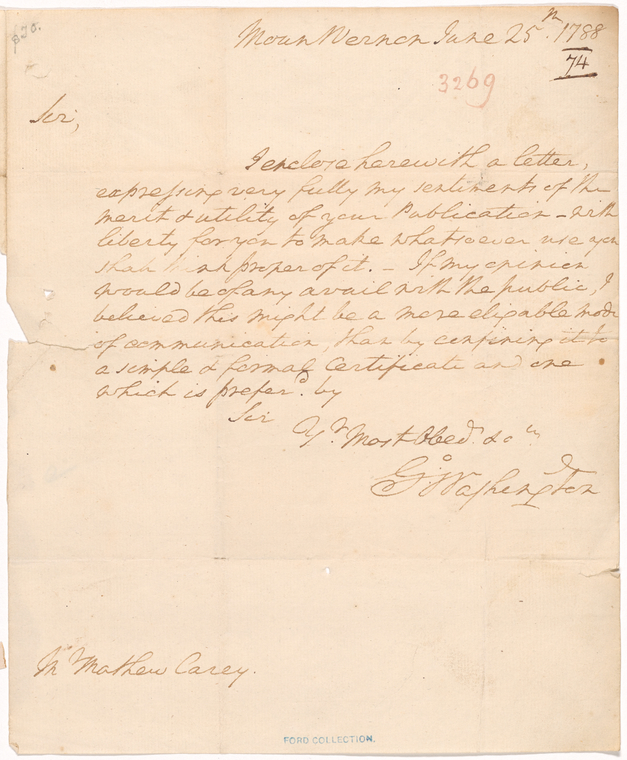 670.
Moun Vernon June 25th. 1788
74
3269
Sir,
I enclose herewith a letter,
expressing very fully my sentiments of the
merit & utility of your Publication – with
liberty for you to make whatsoever use you
shall think proper of it. – If my opinion
would be of any avail with the public, I
believed this might be a more eligable mode
of communication, than by confining it to
a simple & formal Certificate and one
which is prefer'd. by
Sir
Yr. Most Obed. &c
Go. Washington
Mr Mathew Carey.
FORD COLLECTION.